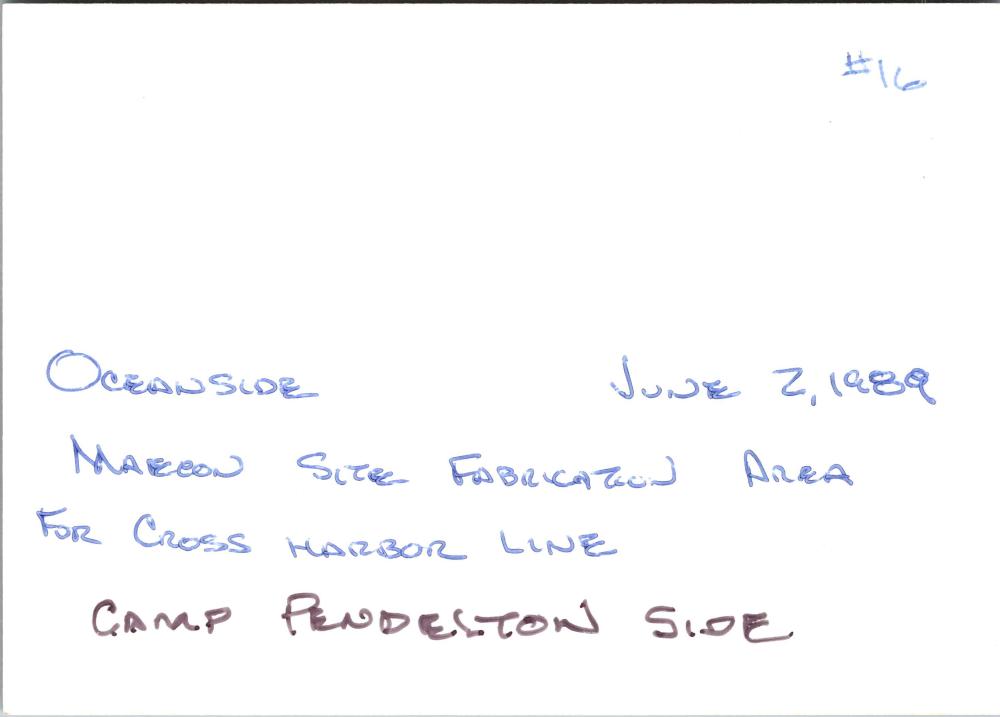 #16
OCEANSIDE JUNE 2, 1989
MAECON SITE FABRICATION AREA
FOR CROSS HARBOR LINE
CAMP PENDELTON SIDE